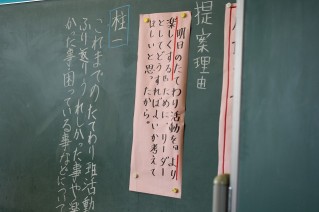 提案理由
明日のたてわり活動を、より
楽しくするために、リーダー
としてどうすればよいか考えて
ほしいと思ったから。
柱一
これまでのたてわり班活動
ふり巻 うれしかった事や
かった事、困っている事などについて